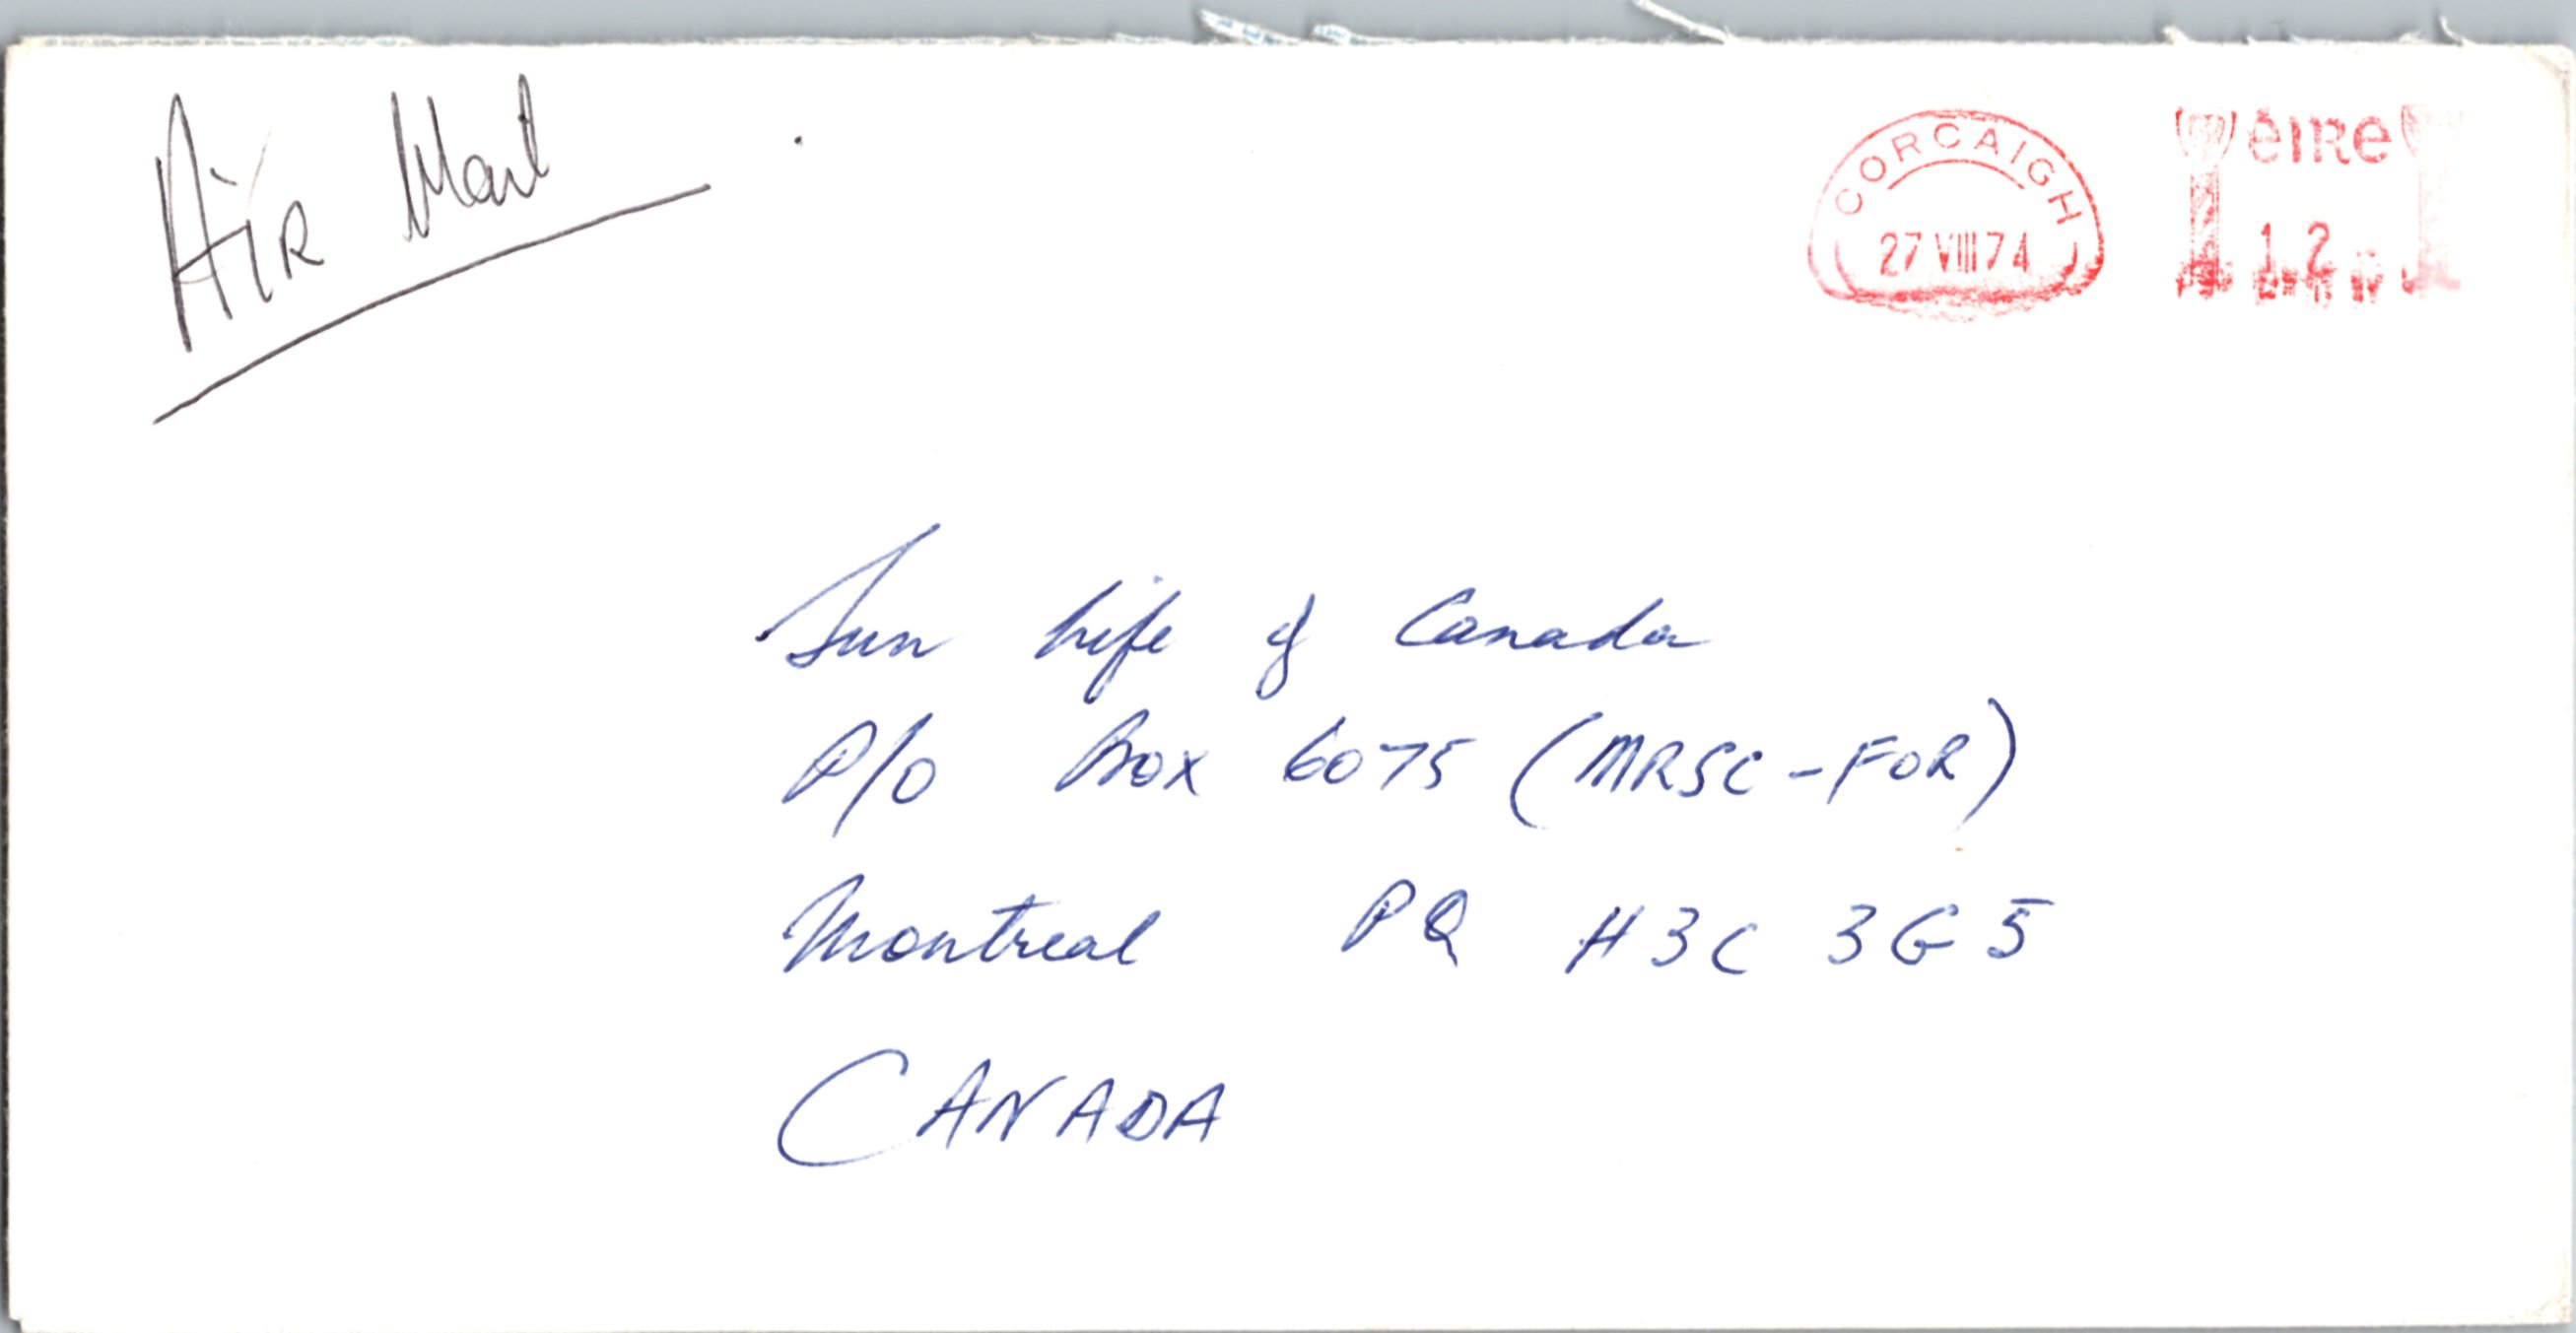 Air Mail
CORCAIGH
27 VIII 74
éire
12
Sun Life of Canada
P/O Box 6075 (MRSC-FOR)
Montreal PQ H3C 3G5
CANADA